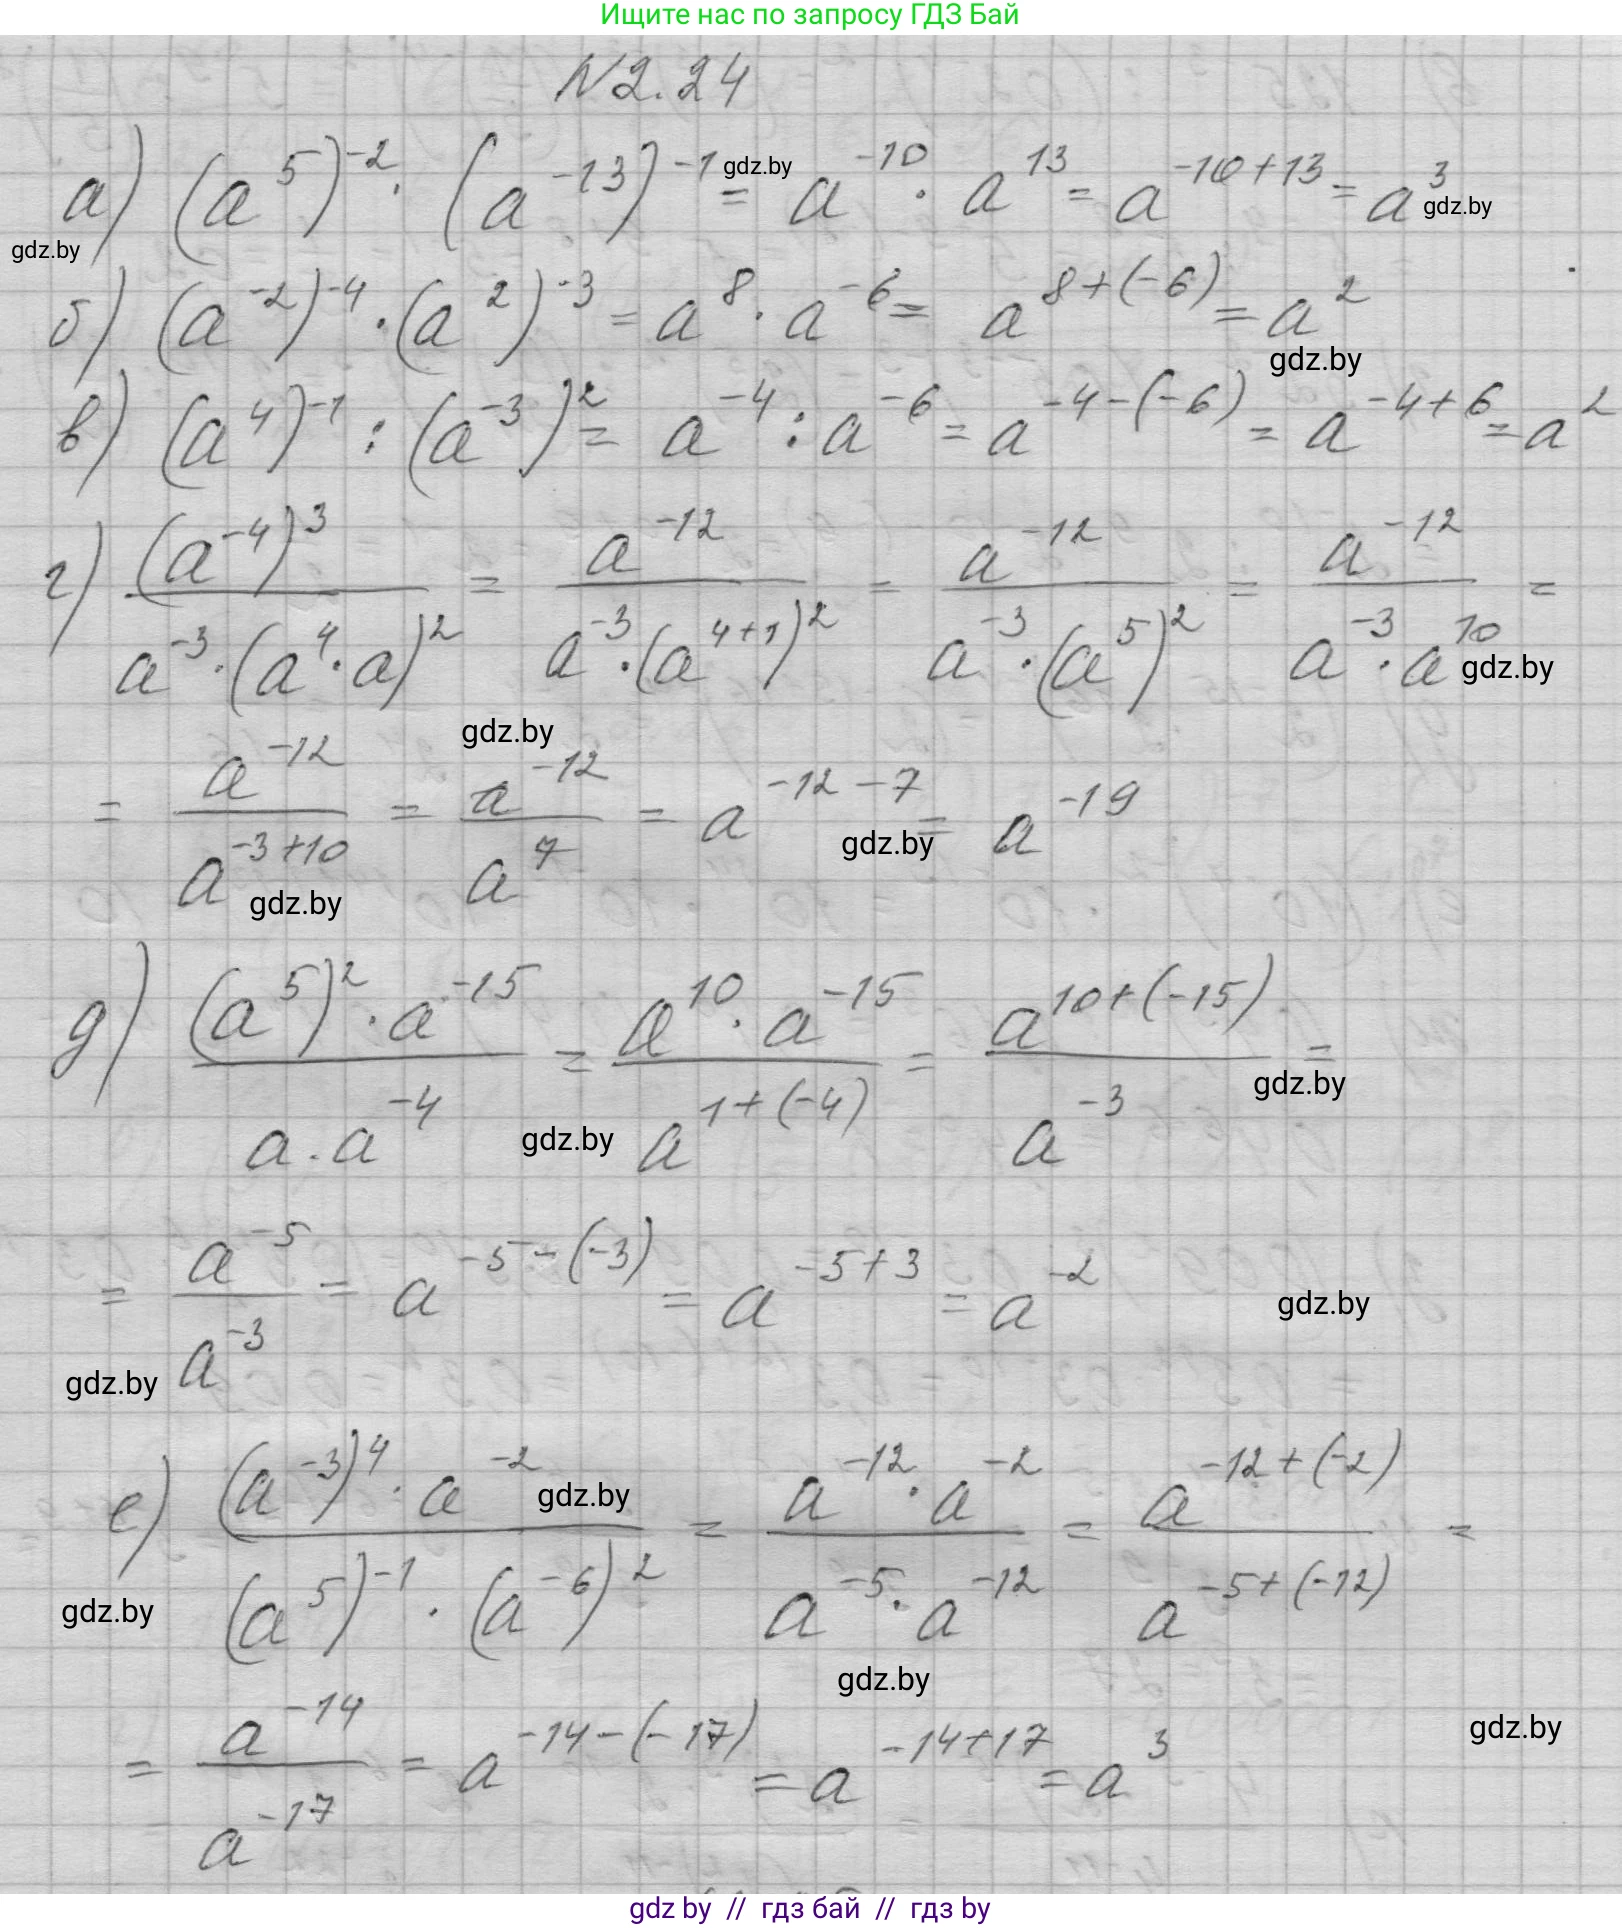 Ищите нас по запросу ГДЗ Бай
N2.24
а) (a^5)^-2 · (a^-13)^-1 = a^-10 · a^13 = a^-10+13 = a^3
gdz.by gdz.by
gdz.by
б) (a^-2)^-4 · (a^2)^-3 = a^8 · a^-6 = a^8+(-6) = a^2
gdz.by
в) (a^4)^-1 : (a^-3)^2 = a^-4 : a^-6 = a^-4-(-6) = a^-4+6 = a^2
г) (a^-4)^3 / a^-3 · (a^4 · a)^2 = a^-12 / a^-3 · (a^4+1)^2 = a^-12 / a^-3 · (a^5)^2 = a^-12 / a^-3 · a^10 =
gdz.by
gdz.by
= a^-12 / a^-3+10 = a^-12 / a^7 = a^-12-7 = a^-19
gdz.by
gdz.by
д) (a^5)^2 · a^-15 / a · a^-4 = a^10 · a^-15 / a^1+(-4) = a^10+(-15) / a^-3 =
gdz.by
gdz.by
= a^-5 / a^-3 = a^-5-(-3) = a^-5+3 = a^-2
gdz.by
gdz.by
е) (a^-3)^4 · a^-2 / (a^5)^-1 · (a^-6)^2 = a^-12 · a^-2 / a^-5 · a^-12 = a^-12+(-2) / a^-5+(-12) =
gdz.by
gdz.by
gdz.by
= a^-14 / a^-17 = a^-14-(-17) = a^-14+17 = a^3
gdz.by
gdz by // гдз бай // гдз by